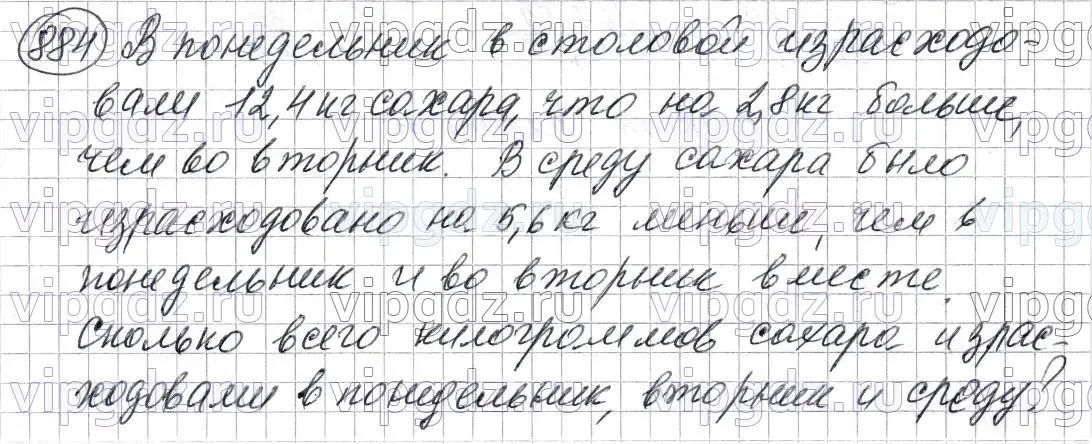 884 В понедельник в столовой израсходо-
вали 12,4 кг сахара, что на 2,8 кг больше,
чем во вторник. В среду сахара было
израсходовано на 5,6 кг меньше, чем в
понедельник и во вторник вместе.
Сколько всего килограммов сахара израс-
ходовали в понедельник, вторник и среду?